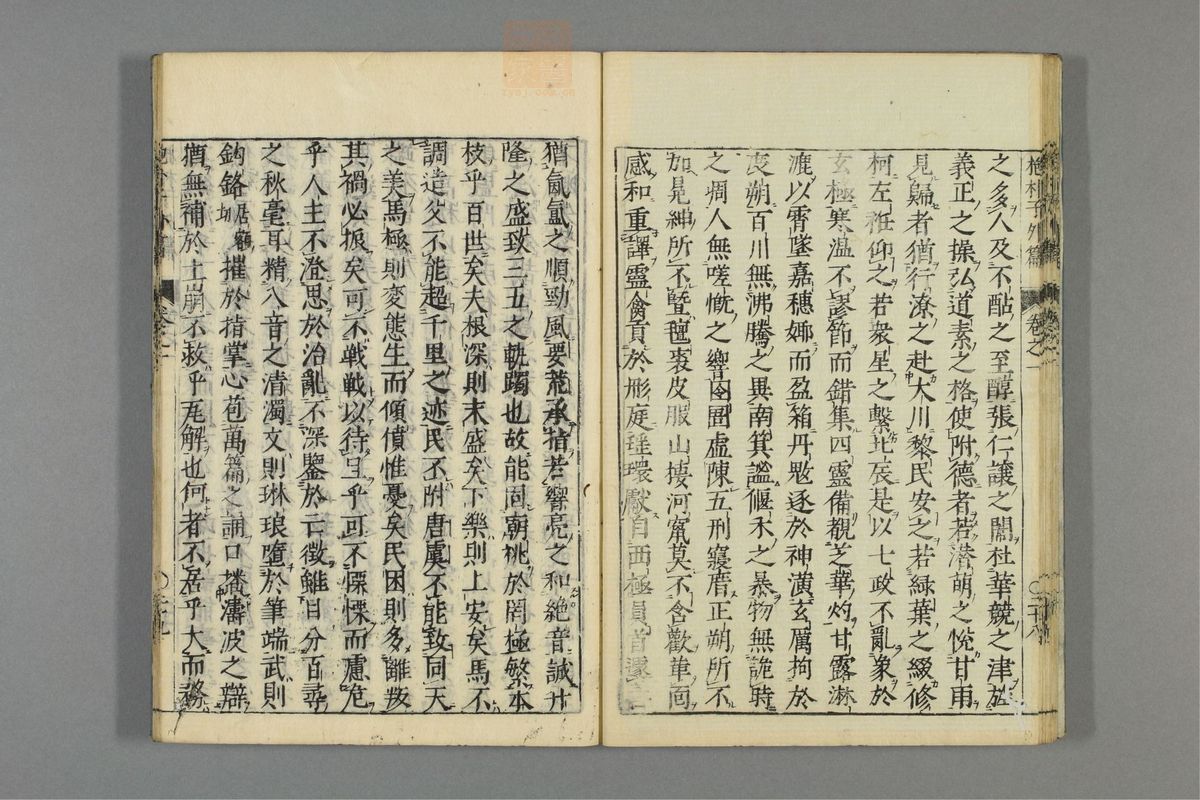 抱朴子外篇 卷之一 〇二十八
之多人及不酤之至醇張仁讓之闈杜華競之津於
義正之操弘道素之格使附德者若潛萌之悅甘雨
見歸者猶行潦之赴大川黎民安之若綠葉之綴修
柯左衽仰之若衆星之繫北辰是以七政不亂象於
玄極寒温不謬節而錯集四靈備覿芝華灼甘露淋
漉以霄墜嘉穗婀而盈箱丹魃逐於神潢玄厲拘於
度朔百川無沸騰之異南箕謐偃禾之暴物無詭時
之凋人無嗟慨之響囹圄虛陳五刑寢厝正朔所不
加冕紳所不曁氊裘皮服山棲河窟莫不含歡革面
感和重譯靈禽貢於彤庭瑤環獻自西極員首遽
猶氤氳之順勁風要荒承指若響亮之和絶音誠升
隆之盛致三五之軌躅也故能固廟桃於罔極繁本
枝乎百世矣夫根深則末盛矣下樂則上安矣馬不
調造父不能超千里之迹民不附唐虞不能致同天
之美馬極則変態生而傾僨惟憂矣民困則多離叛
其禍必振矣可不戰戰以待旦乎可不慄慄而慮危
乎人主不澄思於治亂不深鑒於亡徵雖目分百尋
之秋毫耳精八音之清濁文則琳琅墮於筆端武則
鈎鉻摧於指掌心苞萬篇之誦口播濤波之辯
猶無補於土崩不救乎瓦解也何者不居乎大而務